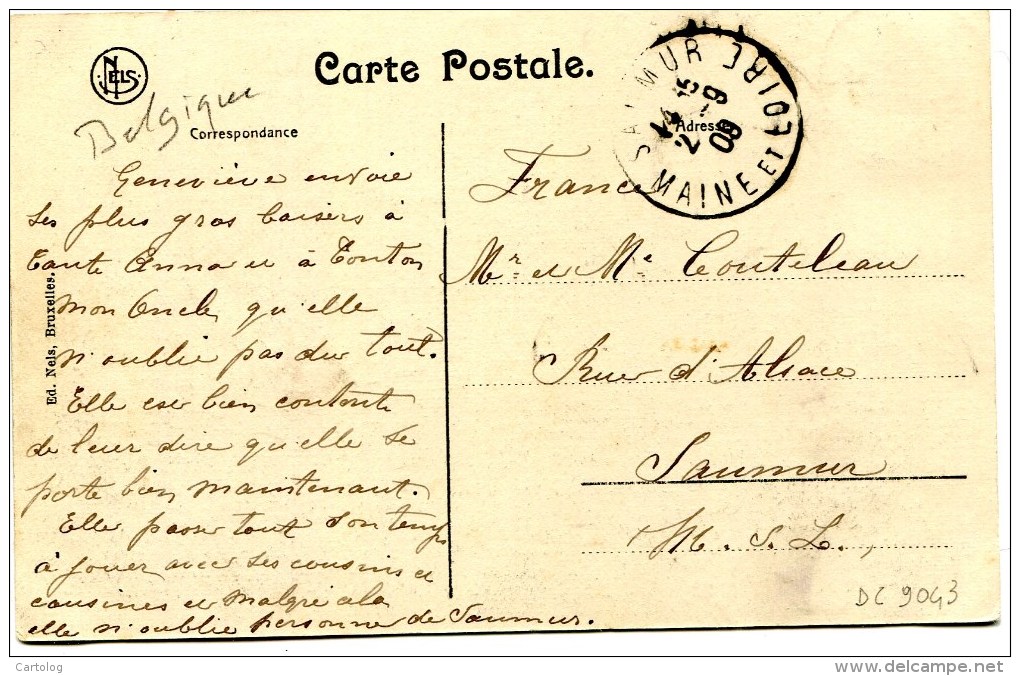 NELS
Carte Postale.
Belgique
Correspondance
Adresse
SAUMUR
MAINE ET LOIRE
2 - 9
09
Geneviève envoie
ses plus gros baisers à
Tante Anna et à Tonton
mon Oncle, qu'elle
n'oublie pas du tout.
Elle est bien contente
de leur dire qu'elle se
porte bien maintenant.
Elle passe tout son temps
à jouer avec ses cousins et
cousines et malgré cela
elle n'oublie personne de Saumur.
Ed. Nels, Bruxelles.
France
Mr. et Me. Couteleau
Rue d'Alsace
Saumur
M. &. L.
DC 9043
Cartolog
www.delcampe.net